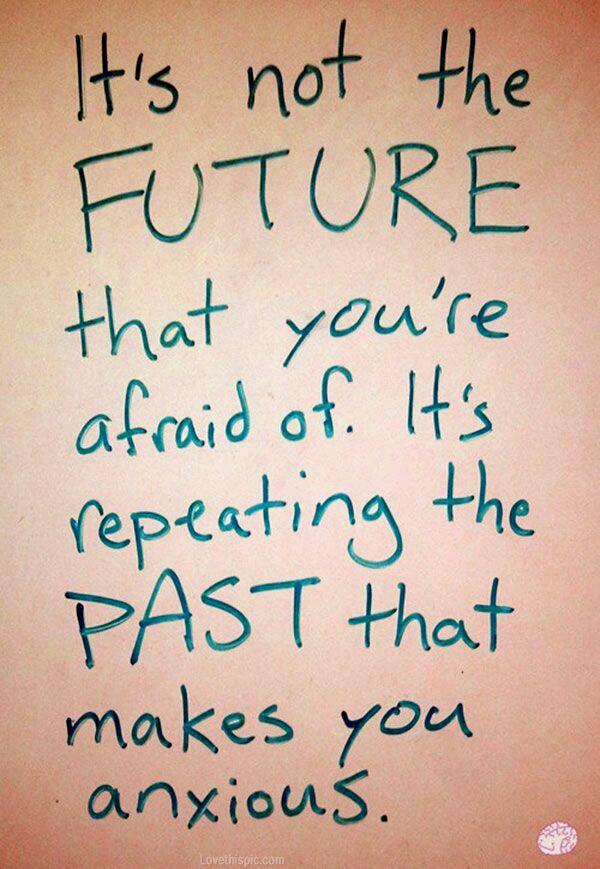 It's not the
FUTURE
that you're
afraid of. It's
repeating the
PAST that
makes you
anxious.
Lovethispic.com